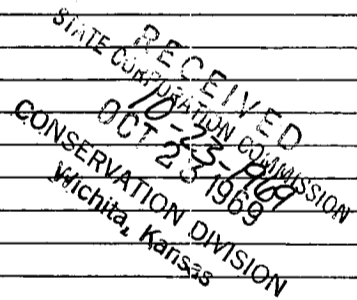 RECEIVED
STATE CORPORATION COMMISSION
10-23-1969
OCT 23 1969
CONSERVATION DIVISION
Wichita, Kansas